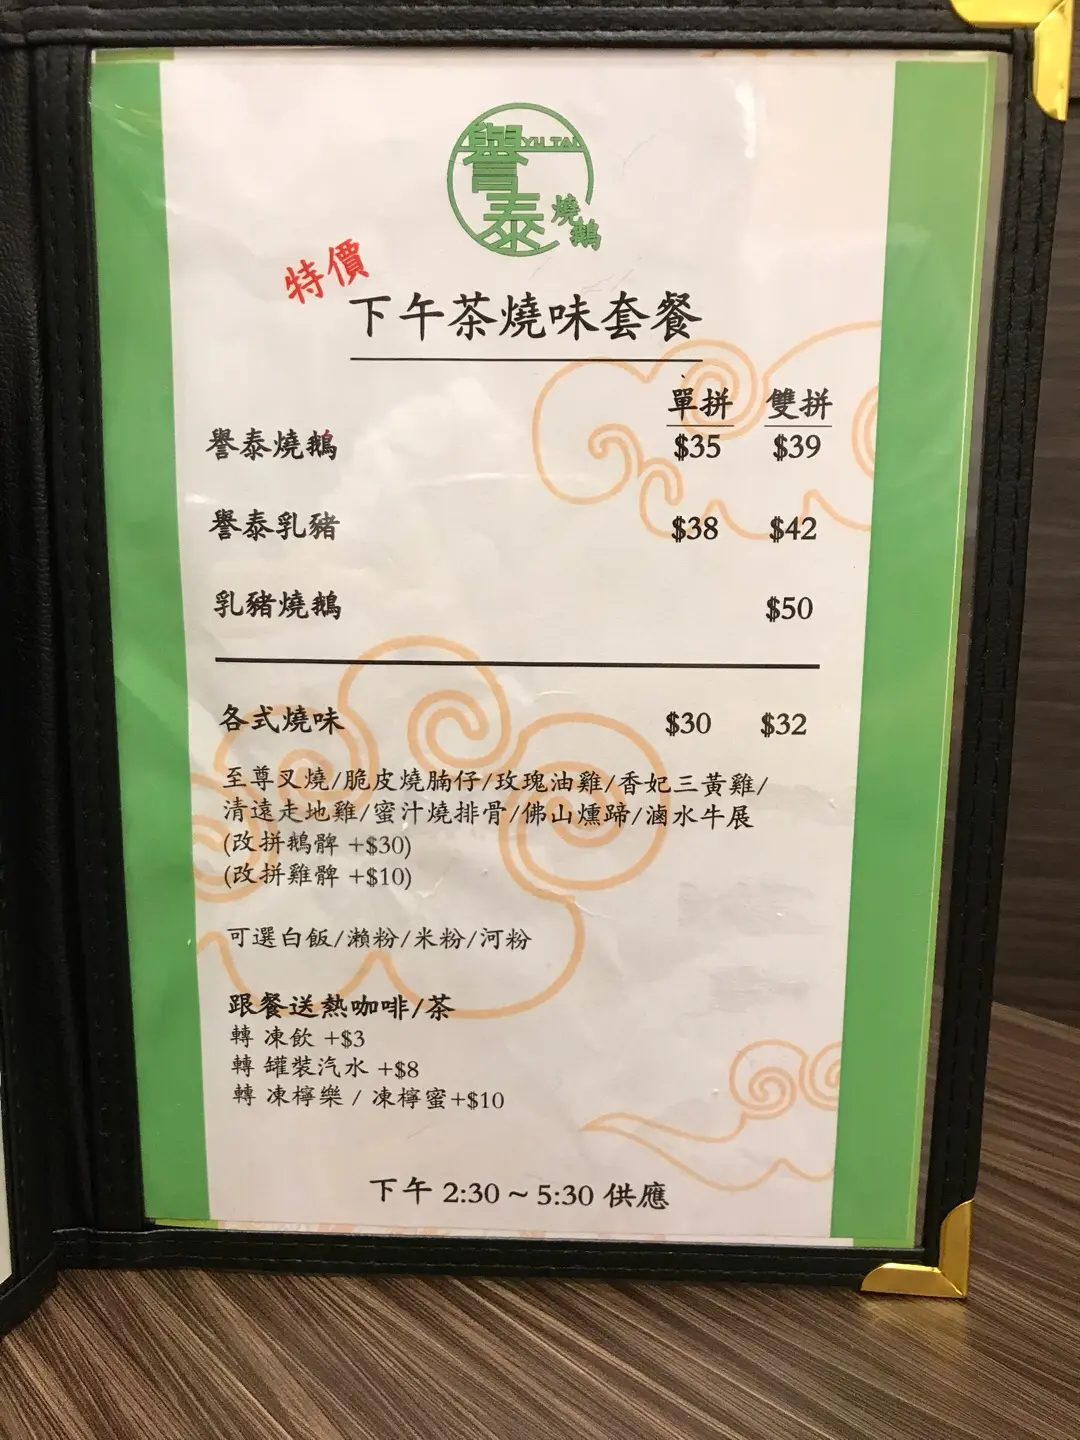 譽泰
YU TAI
燒鵝
特價
下午茶燒味套餐
單拼 雙拼
譽泰燒鵝 $35 $39
譽泰乳豬 $38 $42
乳豬燒鵝 $50
各式燒味 $30 $32
至尊叉燒/脆皮燒腩仔/玫瑰油雞/香妃三黃雞/
清遠走地雞/蜜汁燒排骨/佛山燻蹄/滷水牛展
(改拼鵝髀 +$30)
(改拼雞髀 +$10)
可選白飯/瀨粉/米粉/河粉
跟餐送熱咖啡/茶
轉 凍飲 +$3
轉 罐裝汽水 +$8
轉 凍檸樂 / 凍檸蜜+$10
下午 2:30 ~ 5:30 供應